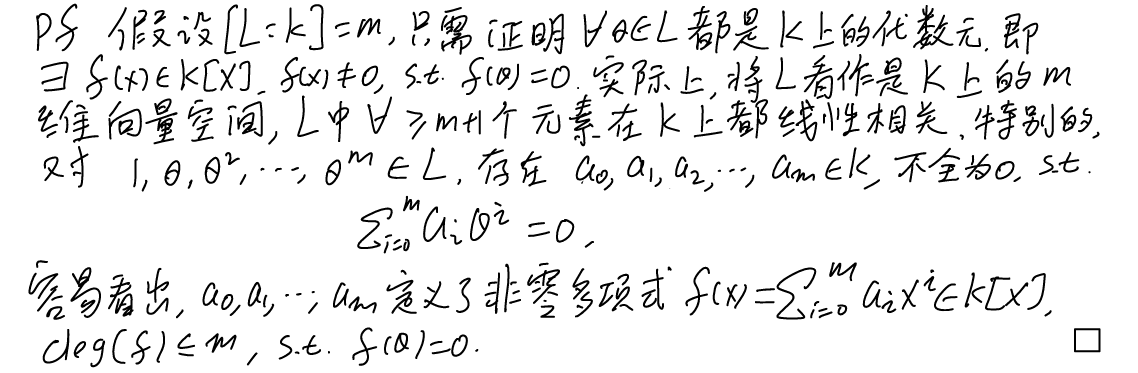 Pf 假设[L:k]=m,只需证明∀θ∈L都是k上的代数元.即
∃f(x)∈k[X].f(x)≠0,s.t. f(θ)=0.实际上,将L看作是k上的m
维向量空间,L中∀≥m+1个元素在k上都线性相关.特别的,
对 1,θ,θ²,…,θᵐ∈L,存在 a₀,a₁,a₂,…,aₘ∈k,不全为0,s.t.
∑ᵢ₌₀ᵐ aᵢθⁱ=0,
容易看出,a₀,a₁,…,aₘ定义了非零多项式 f(x)=∑ᵢ₌₀ᵐ aᵢxⁱ∈k[X],
deg(f)≤m, s.t. f(θ)=0. □